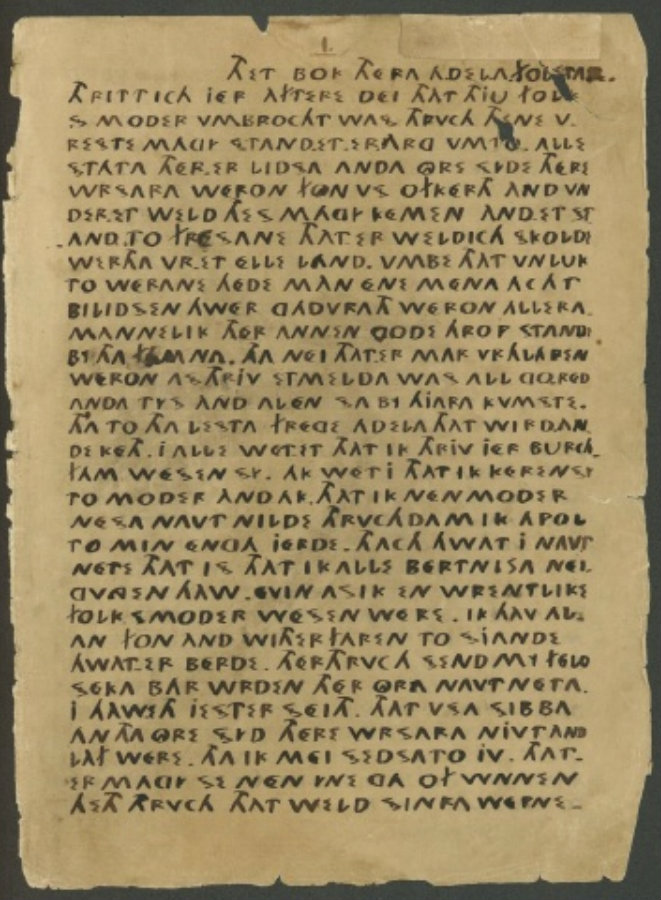 THET BOK THERA ADELA FOLSTAR.
THRITTICH IER AFTERE DEI THAT THIU FOLK
S MODER VMBROCHT WAS THRVCH THENE V
RESTE MAGY STAND.ET.ER ARG VM TO. ALLE
STATA THER.ER LIDSA ANDA ORE SYDE THERE
WRSARA WERON FON VS OFKERTH AND VN
DER.ET WELD THES MAGY KEMEN AND.ET ST
AND.TO FRESANE THAT.ER WELDICH SKOLDE
WERTHA VR.ET ELLE LAND. VMBE THAT VNLUK
TO WERANE HEDE MAN ENE MENA ACHT
BILIDSEN HWER GADVRATH WERON ALLERA
MANNELIK THER ANN EN GODE HROP STANDE
BY THA FAMNA. THA NEI THAT.ER MAR VRHLAPEN
WERON AS THRIV ETMELDA WAS ALL GORED
ANDA TYS AND ALEN SA BY HIARA KVMSTE.
THA TO THA LESTA FREGE ADELA THAT WIRD AN
DE KETH. I ALLE WET.ET THAT IK THRIV IER BURCH
FAM WESEN SY. AK WET I THAT IK KEREN SY
TO MODER AND AK. THAT IK NEN MODER
NESA NAVT NILDE THRVCHDAM IK APOL
TO MIN ENGA IERDE. THACH HWAT I NAVT
NETE THAT IS THAT IK ALLE BERTNISA NEI
GVNGEN HAW. EVIN AS IK EN WRENTLIKE
FOLKSMODER WESEN WERE. IK HAV AL
AN FON AND WITHER FAREN TO SIANDE
HWAT.ER BERDE. THER THRVCH SEND MY FELO
SEKA BAR WRDEN THER ORA NAVT NETA.
I HAWETH IESTER SEITH. THAT VSA SIBBA
AN THA ORE SYD THERE WRSARA NIVT AND
LAF WERE. THA IK MEI SEDSA TO IV. THAT-
ER MAGY SE NEN YNE GA OF WNNEN
HETH THRVCH THAT WELD SINRA WEPNE-